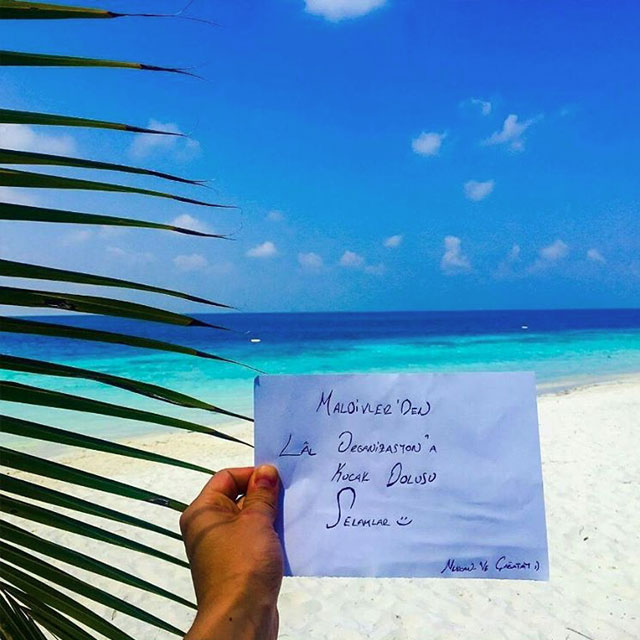 MALDİVLER'DEN
LÂL ORGANİZASYON'A
KUCAK DOLUSU
SELAMLAR :)
VE